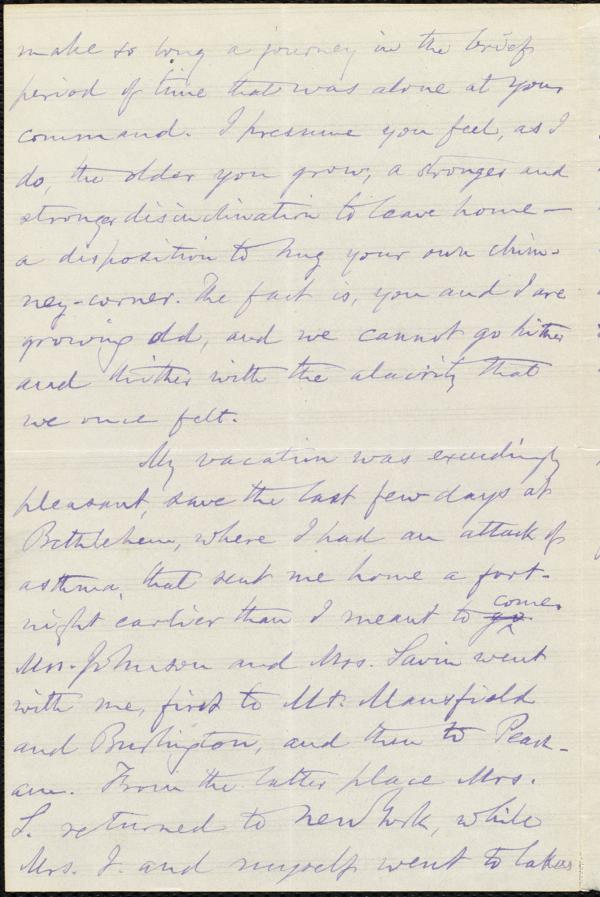 make so long a journey in the brief
period of time that was alone at your
command. I presume you feel, as I
do, the older you grow, a stronger and
stronger disinclination to leave home —
a disposition to hug your own chim-
ney-corner. The fact is, you and I are
growing old, and we cannot go hither
and thither with the alacrity that
we once felt.
My vacation was exceedingly
pleasant, save the last few days at
Bethlehem, where I had an attack of
asthma, that sent me home a fort-
night earlier than I meant to go come.
Mrs. Johnson and Mrs. Savin went
with me, first to Mt. Mansfield
and Burlington, and then to Peach-
am. From the latter place Mrs.
S. returned to New York, while
Mrs. J. and myself went to Lakes